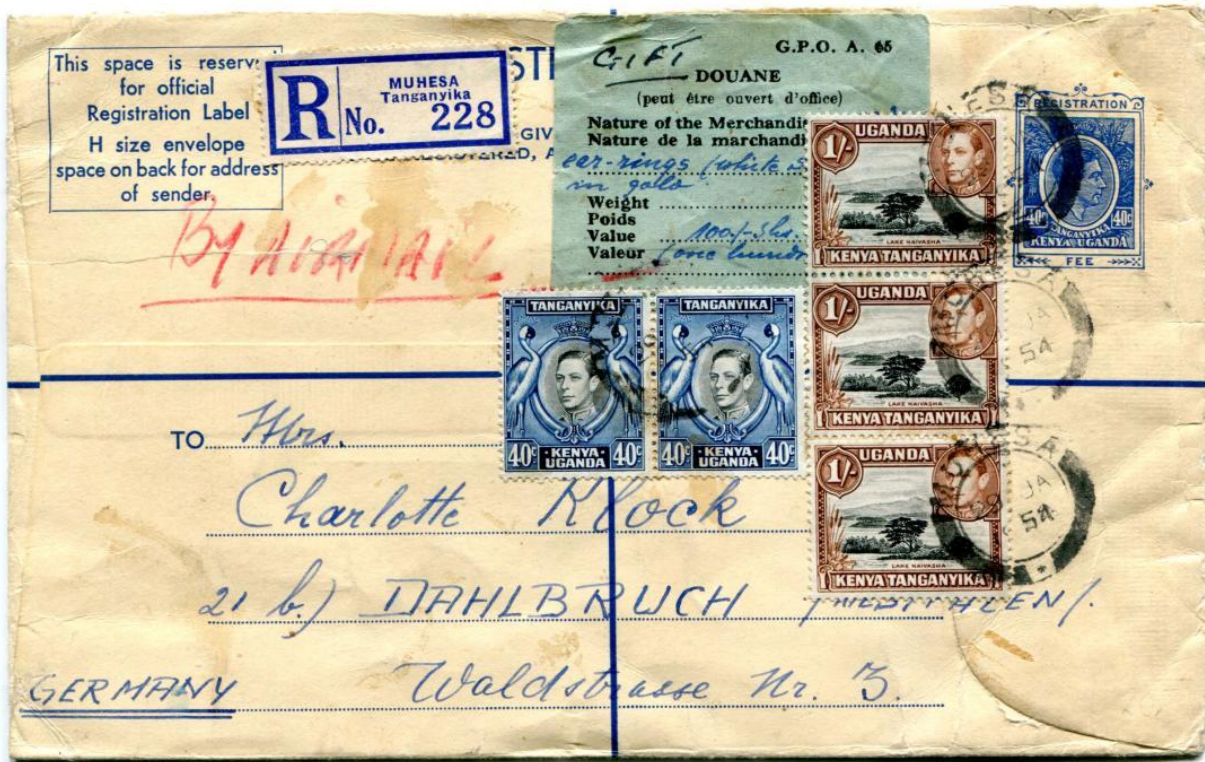 This space is reserv
for official
Registration Label
H size envelope
space on back for address
of sender.
R
MUHESA
Tanganyika
No. 228
GIFT
G.P.O. A. 65
DOUANE
(peut être ouvert d'office)
Nature of the Merchandi
Nature de la marchandi
ear-rings (white
in gold
Weight
Poids
Value 100/-shs.
Valeur (one hund
By AIR
REGISTRATION
40c 40c
TANGANYIKA
KENYA UGANDA
FEE
1/- UGANDA
LAKE NAIVASHA
KENYA TANGANYIKA
1/- UGANDA
LAKE NAIVASHA
KENYA TANGANYIKA
JA
54
1/- UGANDA
LAKE NAIVASHA
KENYA TANGANYIKA
JA
54
TANGANYIKA
40c KENYA UGANDA 40c
TANGANYIKA
40c KENYA UGANDA 40c
TO Mrs.
Charlotte Klock
21 b.) DAHLBRUCH
Waldstrasse Nr. 3.
GERMANY